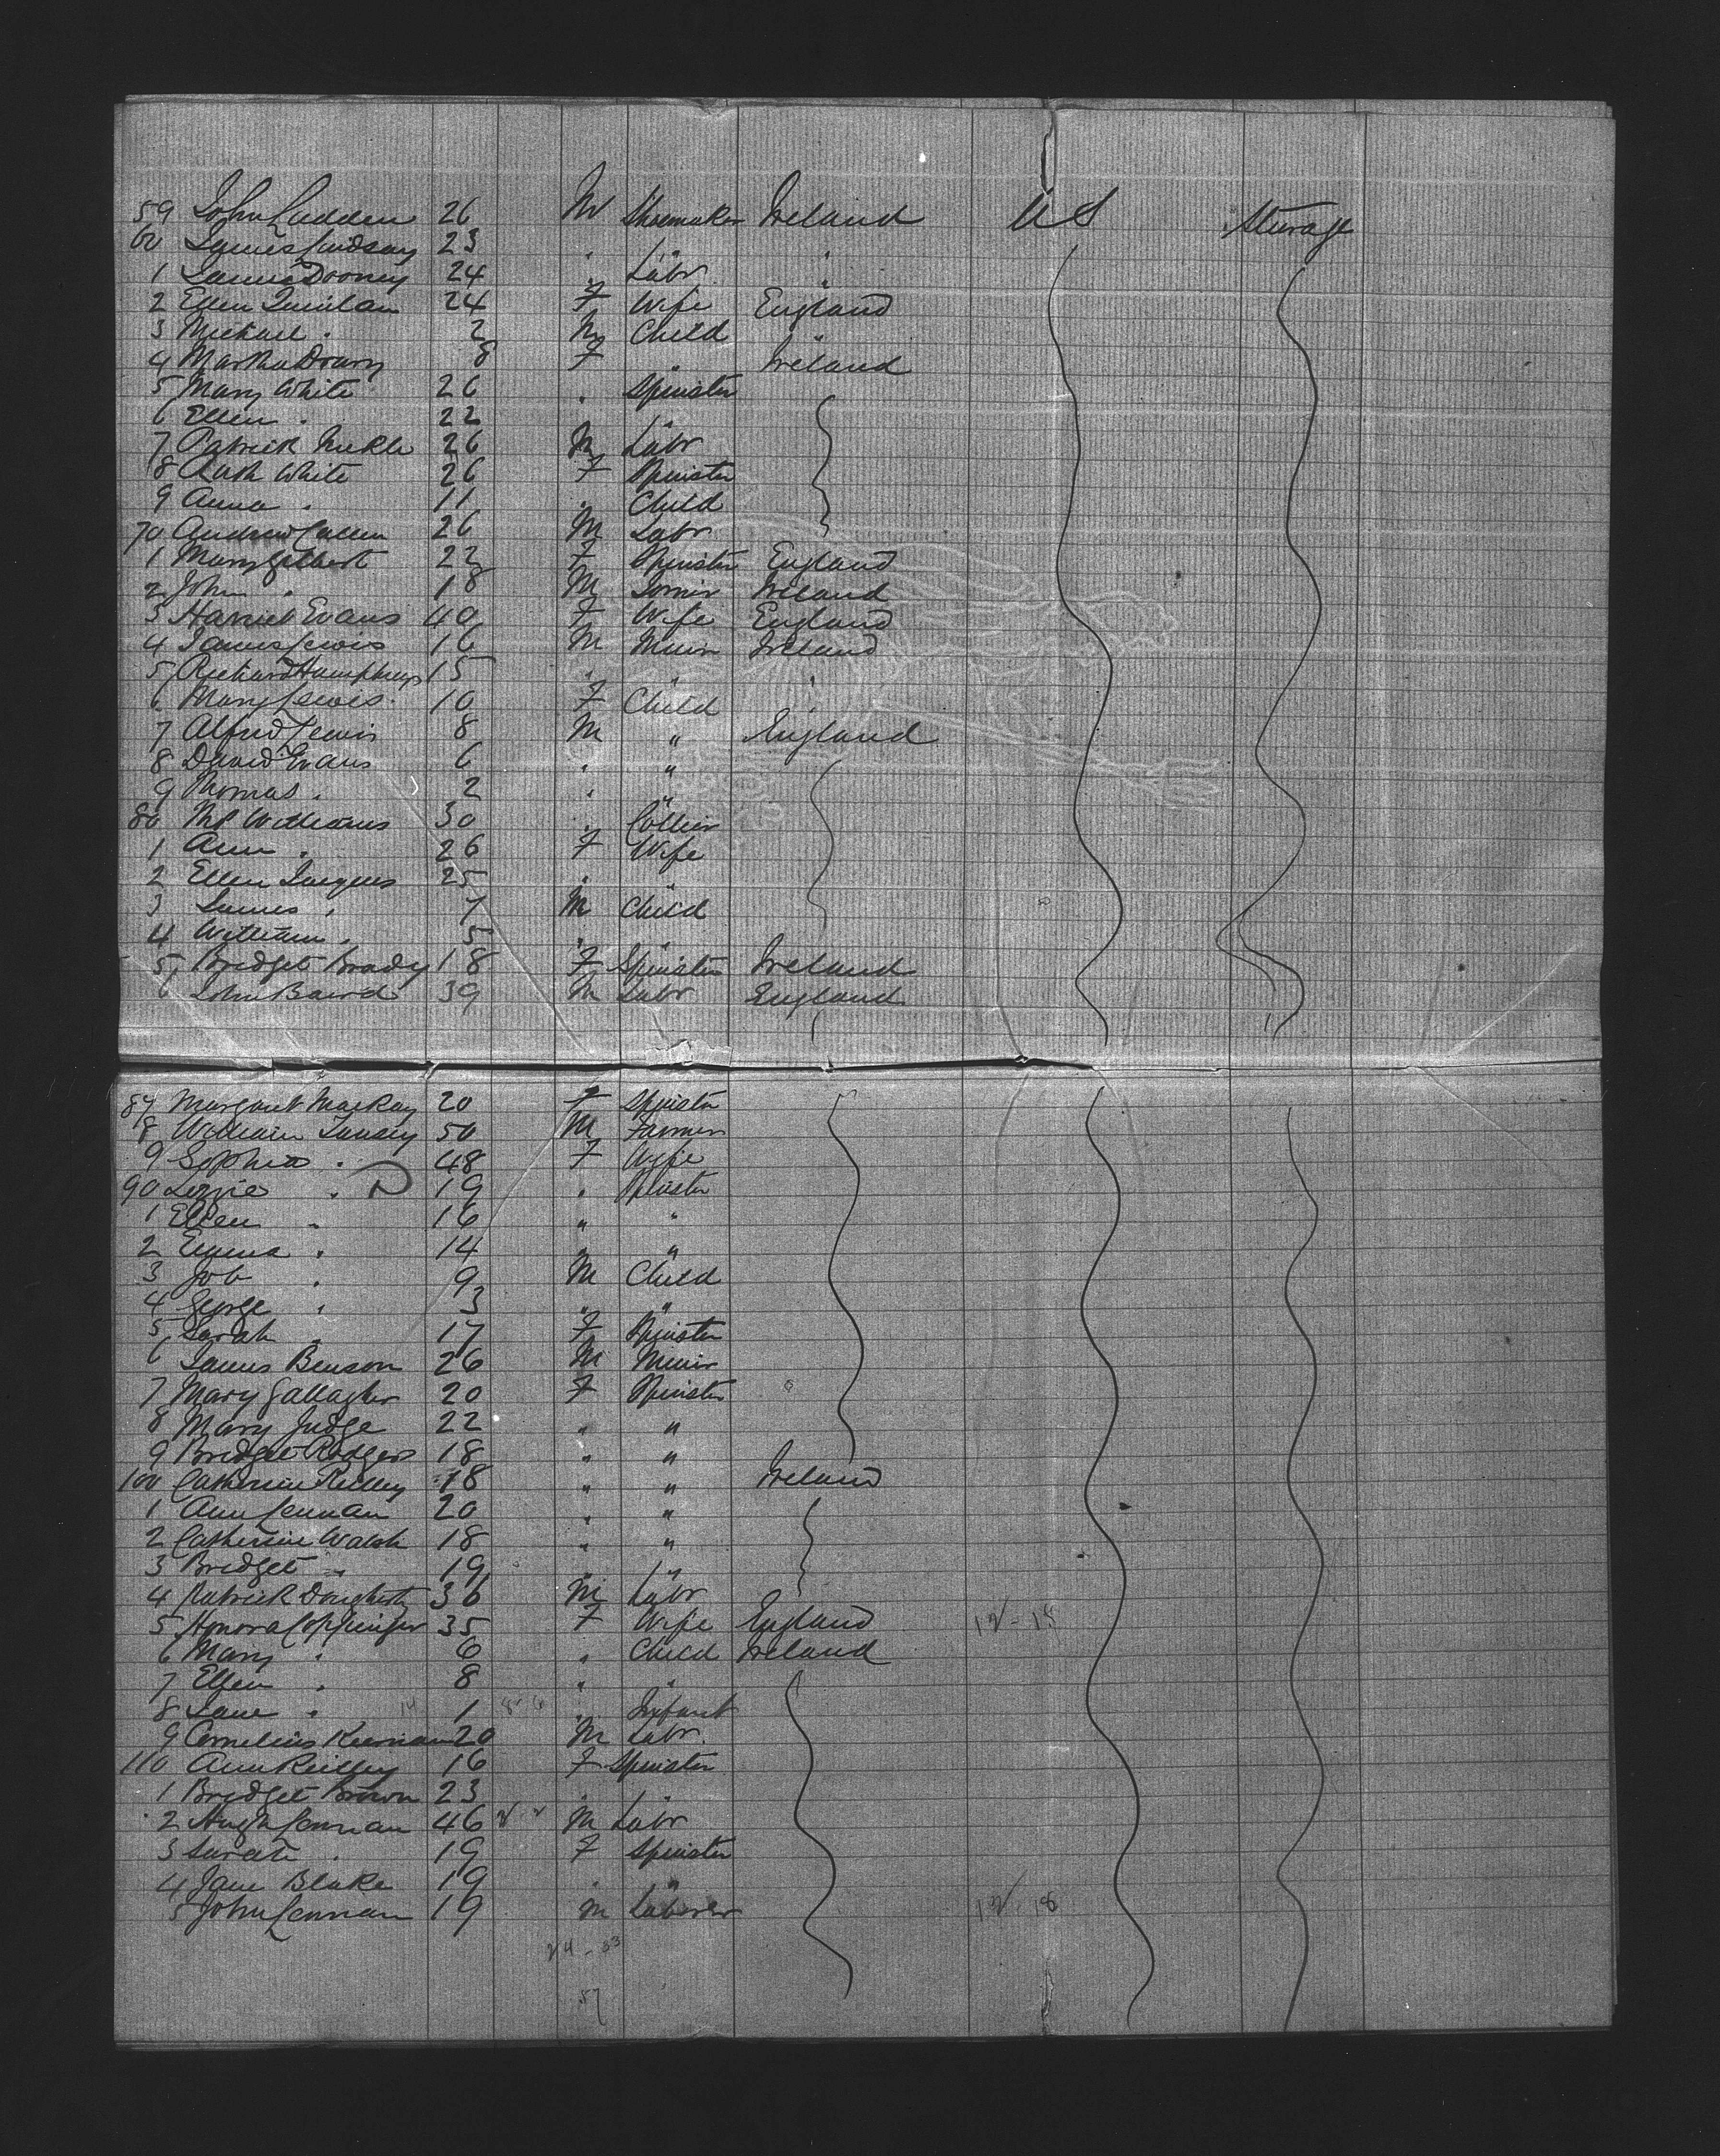 59 John Cudden 26 M Shoemaker Ireland US Sturage
60 James Lindsay 23 " "
1 James Drooney 24 " Labr "
2 Ellen Quinlan 24 F Wife England
3 Michael " 2 M Child "
4 Martha Drury 8 F " Ireland
5 Mary White 26 " Spinster
6 Ellen " 22
7 Patrick 26 M Labr
8 Ruth White 26 F Spinster
9 Anna " 11 " Child
70 Andrew Cullen 26 M Labr
1 Mary Gilbert 22 F Spinster England
2 John " 18 M Ireland
3 Harriet Evans 40 F Wife England
4 James Lewis 16 M Minir Ireland
5 Richard Humphreys 15 " " "
6 Mary Lewis 10 F Child
7 Alfred Lewis 8 M " England
8 David Evans 6 " "
9 Thomas " 2 " "
80 Williams 30 " Collier
1 Ann " 26 F Wife
2 Ellen Jaques 25 " "
3 James " 7 M Child
4 William " 5 " "
5 Bridget Brady 18 F Spinster Ireland
6 John Baird 39 M Labr England
87 Margaret MacKay 20 F Spinster
8 William Tansey 50 M Farmer
9 Sophia " 48 F Wife
90 Lizzie " 19 " Spinster
1 Ellen " 16 " "
2 Emma " 14 " "
3 Job " 9 M Child
4 George " 3 " "
5 Sarah " 17 F Spinster
6 James Benson 26 M Minir
7 Mary Gallagher 20 F Spinster
8 Mary Judge 22 " "
9 Bridget Rodgers 18 " "
100 Catherine Reilley 18 " " Ireland
1 Ann Lennan 20 " "
2 Catherine Walsh 18 " "
3 Bridget " 19 " "
4 Patrick Dougherty 36 M Labr
5 Honora Coppinger 35 F Wife England
6 Mary " 6 " Child Ireland
7 Ellen " 8 " "
8 Jane " 1 " Infant
9 Cornelius Keernan 20 M Labr.
110 Ann Reilley 16 F Spinster
1 Bridget Brown 23 " "
2 Hugh Lennan 46 M Labr
3 Sarah " 19 F Spinster
4 Jane Blake 19 " "
5 John Lennan 19 M Laborer
57